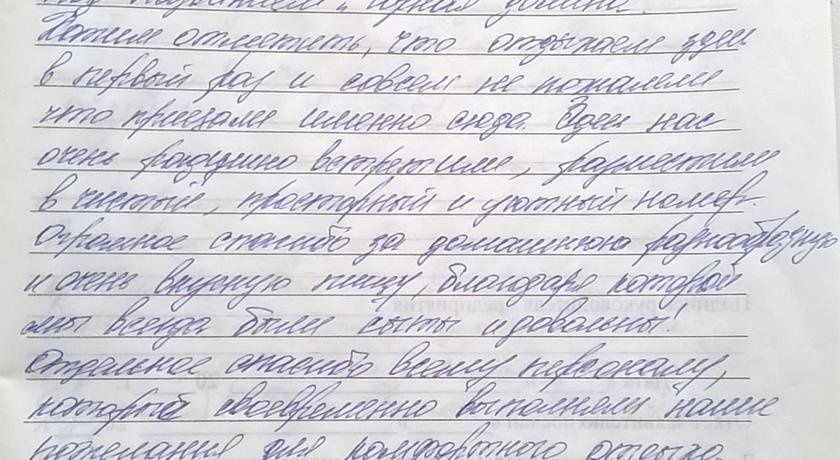 под названием "Чудная долина".
Хотим отметить, что отдыхаем здесь
в первый раз и совсем не пожалели
что приехали именно сюда. Здесь нас
очень радушно встретили, разместили
в чистый, просторный и уютный номер.
Огромное спасибо за домашнюю разнообразную
и очень вкусную пищу, благодаря которой
мы всегда были сыты и довольны!
Отдельное спасибо всему персоналу,
который своевременно выполняли наши
пожелания для комфортного отдыха.